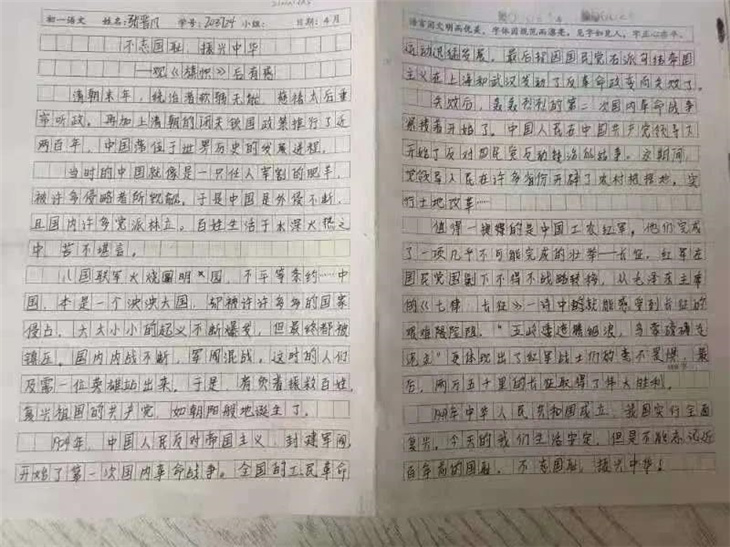 初一语文 姓名: 学号: 小组: 日期: 4月
不忘国耻,振兴中华
——观《旗帜》后有感
清朝末年,统治者软弱无能,慈禧太后垂
帘听政。再加上清朝的闭关锁国政策推行了近
两百年,中国落位于世界历史的发展进程。
当时的中国就像是一只任人宰割的肥羊,
被许多侵略者所觊觎。于是中国是外侵不断,
且国内许多党派林立。百姓生活于水深火热之
中,苦不堪言。
八国联军火烧圆明园,不平等条约……中
国,本是一个泱泱大国,却被许许多多的国家
侵占,大大小小的起义不断爆发,但最终都被
镇压。国内内战不断,军阀混战。这时的人们
急需一位英雄站出来。于是,有负着拯救百姓,
复兴祖国的共产党,如朝阳般地诞生了。
1924年,中国人民反对帝国主义、封建军阀,
开始了第一次国内革命战争。全国的工民革命
语言闻文明而优美,字体因规范而漂亮,见字如见人,字正心亦平。
运动迅猛发展,最后因国民党右派勾结帝国
主义在上海和武汉发动了反革命政变而失败了。
失败后,轰轰烈烈的第二次国内革命战争
紧接着开始了。中国人民在中国共产党领导下
开始了反对国民党反动统治的战争。这期间,
党领导人民在许多省份开辟了农村根据地,实
行土地改革……
值得一提的是中国工农红军,他们完成
了一项几乎不可能完成的壮举——长征。红军在
国民党围剿下不得不战略转移,从毛泽东主席
的《七律·长征》一诗中就能感受到长征的
艰难险阻,"五岭逶迤腾细浪,乌蒙磅礴走
泥丸"更体现出了红军战士们的毫不畏惧,最
后,两万五千里的长征取得了伟大胜利。
1949年中华人民共和国成立,我国实行全面
复兴。今天的我们生活安定,但是不能忘记近
百年前的国耻,不忘国耻,振兴中华!